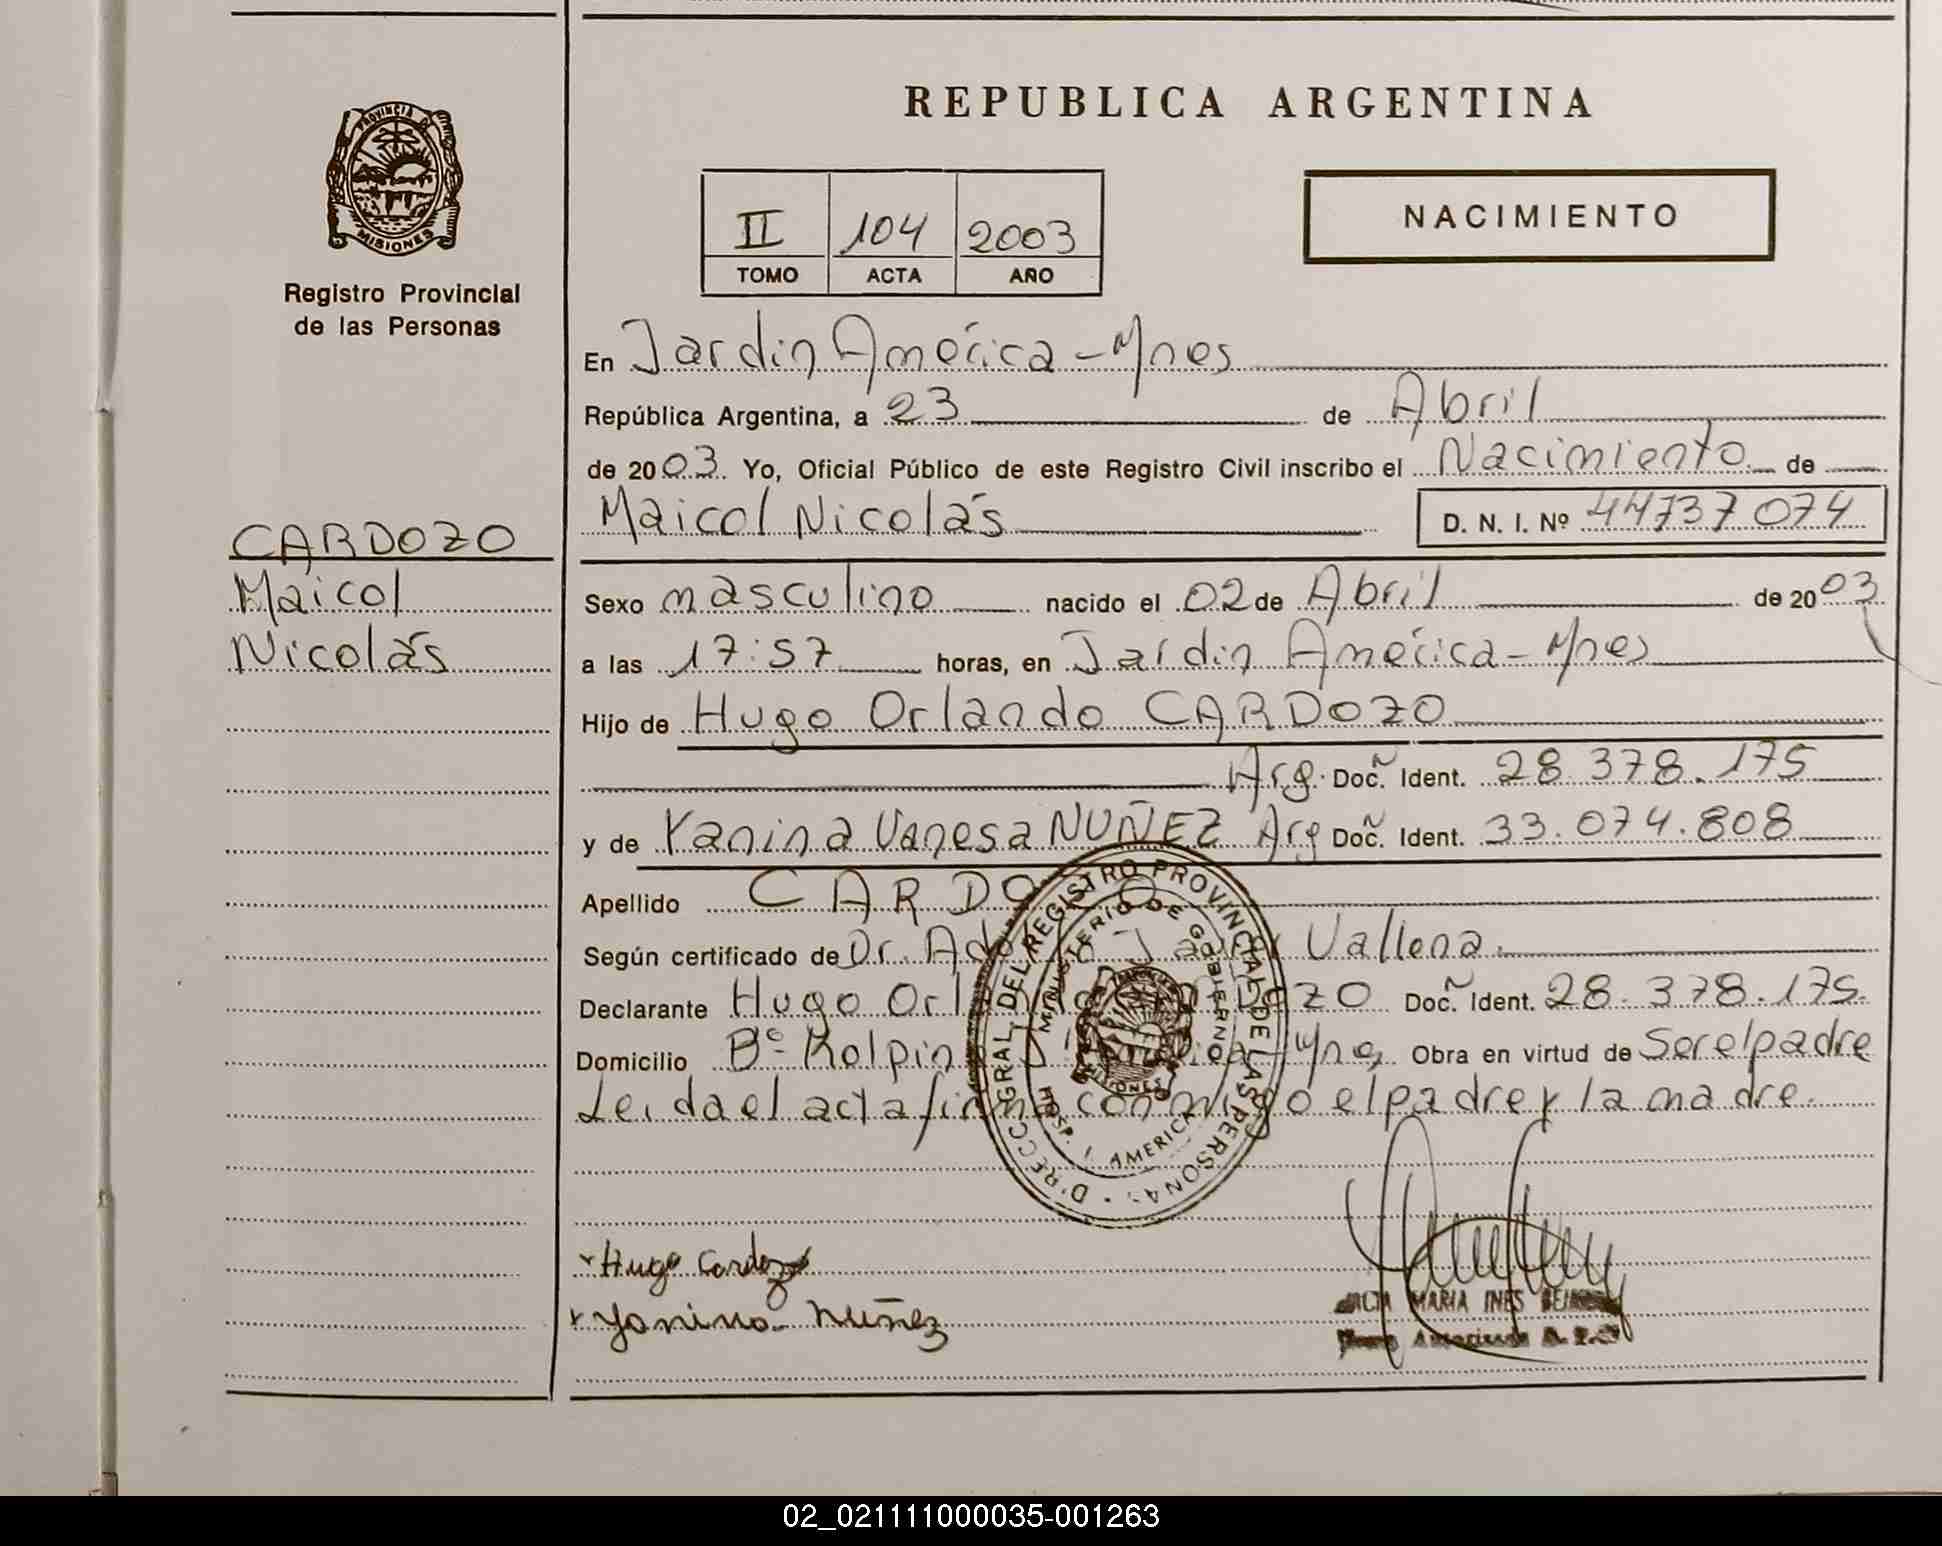 REPUBLICA ARGENTINA
PROVINCIA DE
MISIONES
Registro Provincial
de las Personas
II 104 2003
TOMO ACTA AÑO
NACIMIENTO
En Jardin América - Mnes
República Argentina, a 23 de Abril
de 2003. Yo, Oficial Público de este Registro Civil inscribo el Nacimiento de
Maicol Nicolás D. N. I. Nº 44737074
CARDOZO
Maicol
Nicolás
Sexo masculino nacido el 02 de Abril de 2003
a las 17:57 horas, en Jardin América - Mnes
Hijo de Hugo Orlando CARDOZO
Arg. Docñ. Ident. 28.378.175
y de Yanina Vanesa NUÑEZ Arg Docñ. Ident. 33.074.808
Apellido CARDO
Según certificado de Dr. Vallena.
Declarante Hugo Orl OZO Docñ. Ident. 28.378.175.
Domicilio Bº Kolping Obra en virtud de Ser el padre
Leida el acta firma conmigo el padre y la madre.
DIRECC. GRAL. DEL REGISTRO PROVINCIAL DE LAS PERSONAS
MINISTERIO DE GOBIERNO
MISIONES
AMERICA
Hugo Cardozo
Yanina Nuñez
MARIA INES
02_021111000035-001263